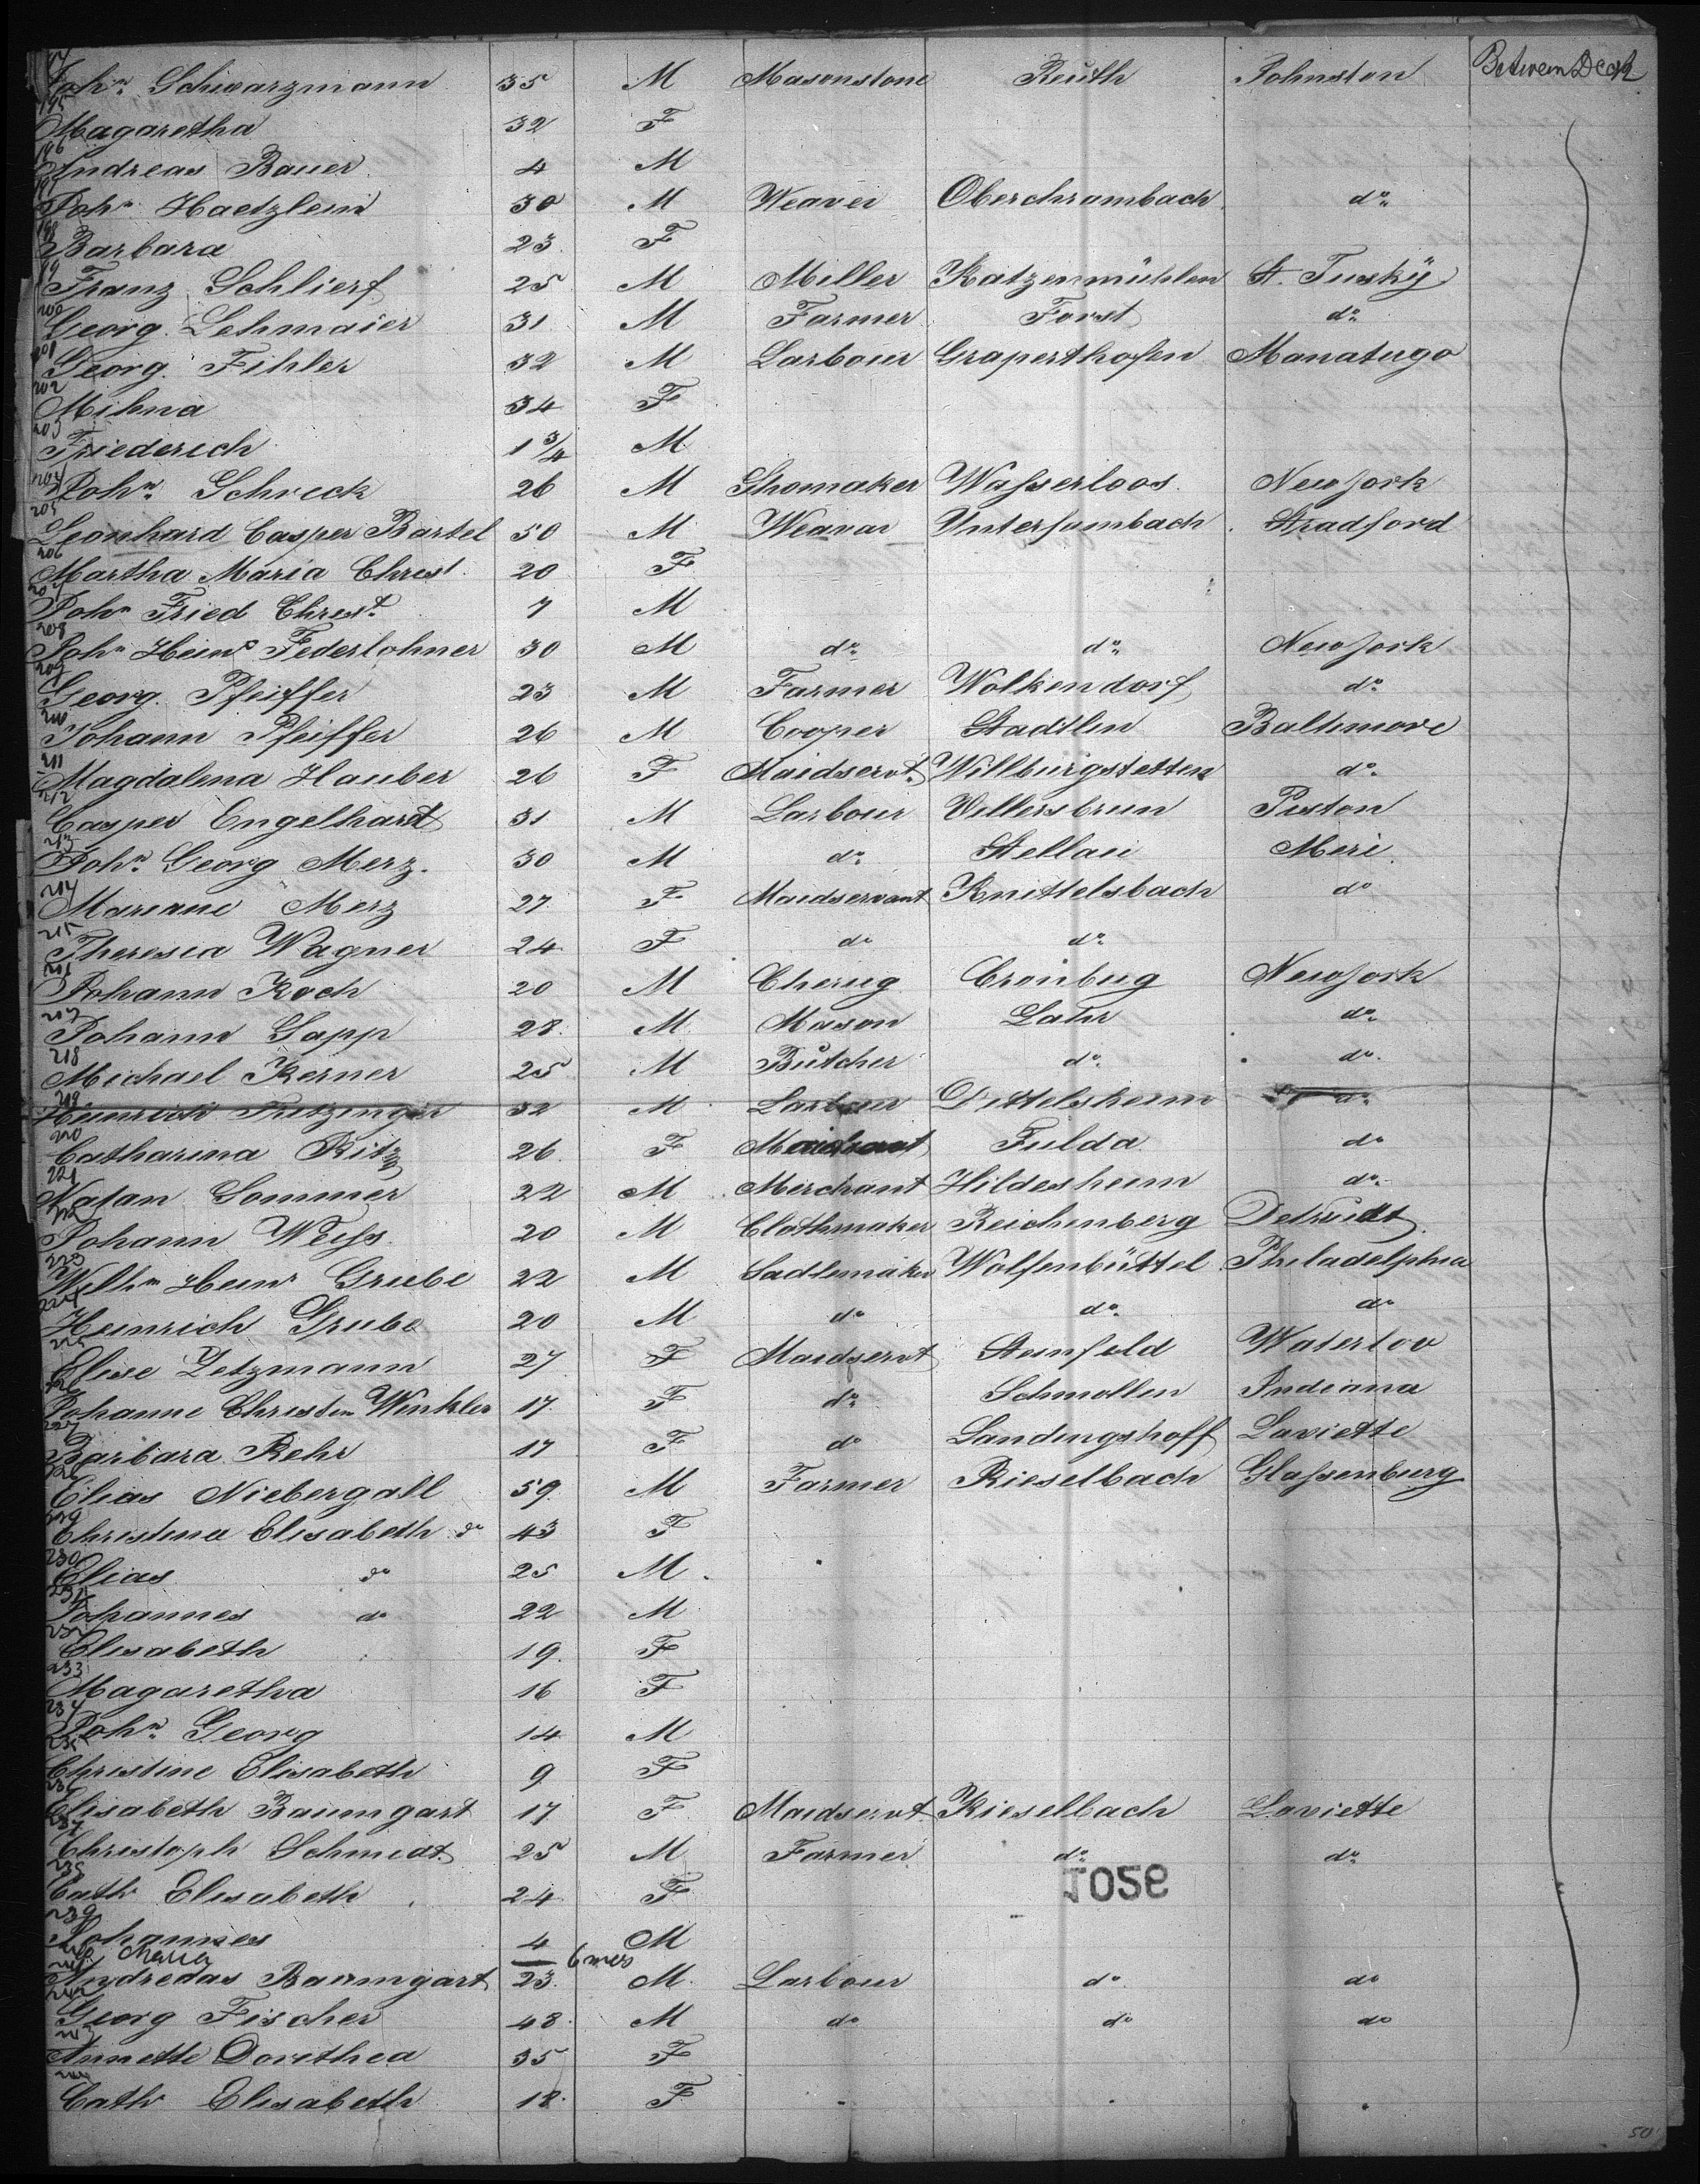 194 Joh.n Schwarzmann 35 M Masonstone Reuth Johnston Between Deck
195 Magaretha 32 F
196 Andreas Bauer 4 M
197 Joh.n Haetzlein 30 M Weaver Oberchrambach do
198 Barbara 23 F
199 Franz Schlierf 25 M Miller Katzenmühlen St. Tusky
200 Georg Lehmaier 31 M Farmer Forst do
201 Georg Fihler 32 M Larbour Graperthofen Manatugo
202 Mihna 34 F
203 Friederich 1 3/4 M
204 Joh.n Schreck 26 M Shomaker Wasserloos New Jork
205 Leonhard Casper Bartel 50 M Weavar Unterfumbach Stradford
206 Martha Maria Christ 20 F
207 Joh.n Fried Christ 7 M
208 Joh.n Heinr Federlohner 30 M do do New Jork
209 Georg Pfeiffer 23 M Farmer Wolkendorf do
210 Johann Pfeiffer 26 M Cooper Stadtlin Baltimore
211 Magdalena Hauber 26 F Maidservt Willburgstetten do
212 Casper Engelhardt 31 M Larbour Vellersbrun Piston
213 Joh.n Georg Merz 30 M do Stellau Meri
214 Mariane Merz 27 F Maidservant Knittelsbach do
215 Theresia Wagner 24 F do do
216 Johann Koch 20 M Cherug Cronbug New Jork
217 Johann Sapp 28 M Mason Lahr do
218 Michael Kerner 25 M Butcher do do
219 Heinrich 32 M Larbour Dittelsheim do
220 Catharina Ritz 26 F Fulda do
221 Natan Sommer 22 M Merchant Hildesheim do
222 Johann Weiss 20 M Clothmaker Reichenberg Detroidt
223 Wilh.m Heinr Grube 22 M Sadlemaker Wolfenbüttel Philadelphia
224 Heinrich Grube 20 M do do do
225 Elise Zetzmann 27 F Maidservt Steinfeld Waterloo
226 Johanne Christin Winkler 17 F do Schmollen Indiana
227 Barbara Rehr 17 F do Landingshoff Laviette
228 Elias Niebergall 59 M Farmer Rieselbach Glassenburg
229 Christina Elisabeth do 43 F
230 Elias do 25 M
231 Johannes do 22 M
232 Elisabeth 19 F
233 Magaretha 16 F
234 Joh.n Georg 14 M
235 Christine Elisabeth 9 F
236 Elisabeth Baumgart 17 F Maidservt Kieselbach Laviette
237 Christoph Schmidt 25 M Farmer do do
238 Cath Elisabeth 24 F Jose
239 Johannes 4 M
240 Maria 6 mos
241 Andredas Baumgart 23 M Larbour do do
242 Georg Fischer 48 M do do do
243 Annette Dorethea 35 F
244 Cath Elisabeth 18 F
50